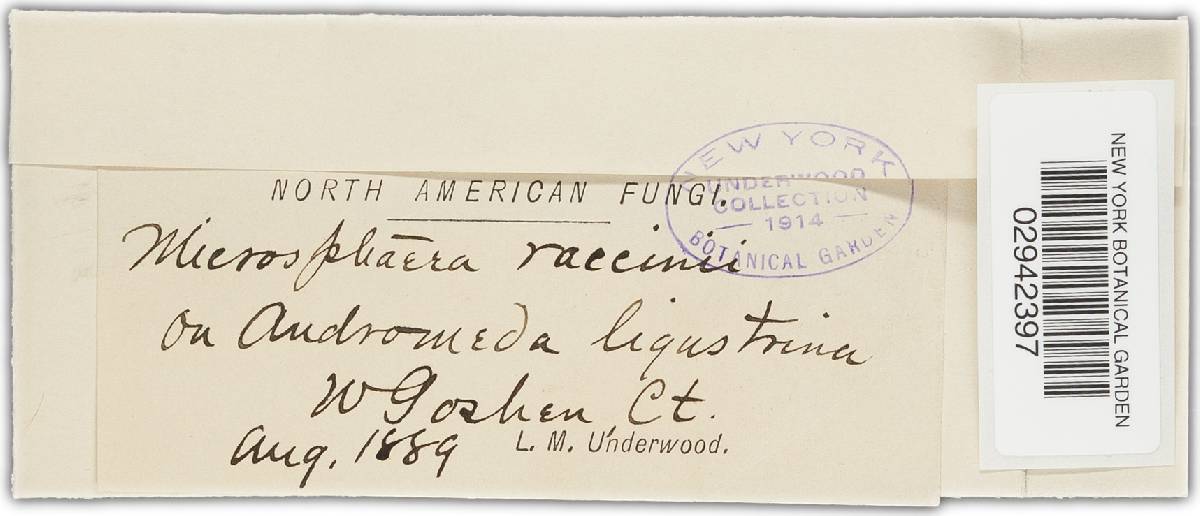 NEW YORK
UNDERWOOD
COLLECTION
1914
BOTANICAL GARDEN
NORTH AMERICAN FUNGI.
Microsphaera vaccinii
on Andromeda ligustrina
W Goshen, Ct.
Aug. 1889
L. M. Underwood.
NEW YORK BOTANICAL GARDEN
02942397